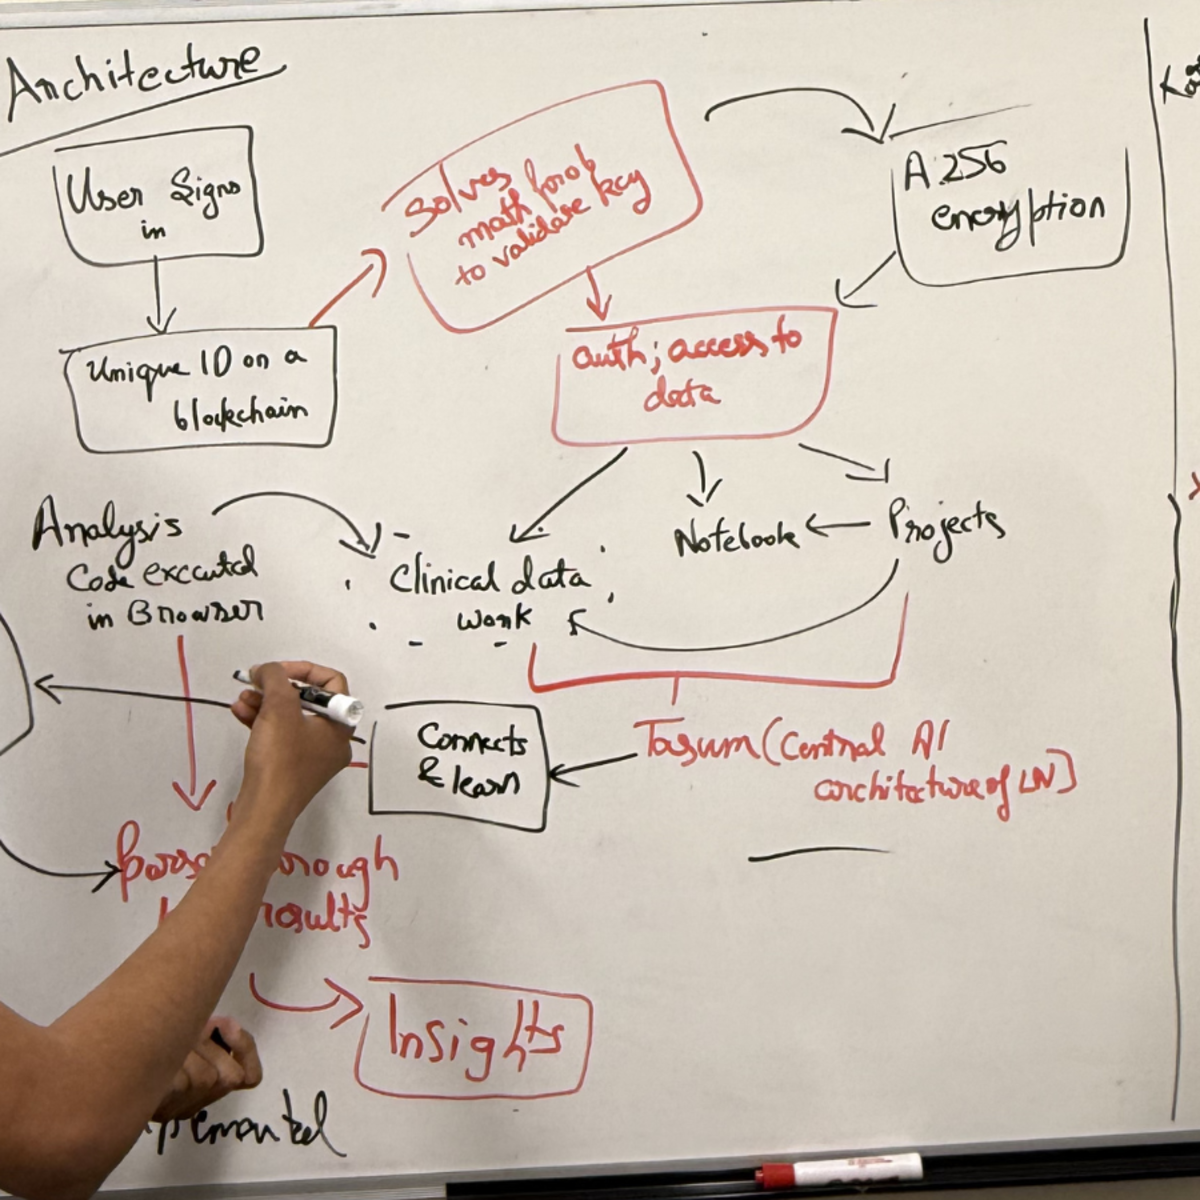 Architecture
User Signs
in
Unique ID on a
blockchain
Solves
math prob
to validate key
A.256
encryption
auth; access to
data
Analysis
Code executed
in Browser
Clinical data
work
Notebook
Projects
Connects
& learn
Tasum (Central AI
architecture of LN)
results
Insights